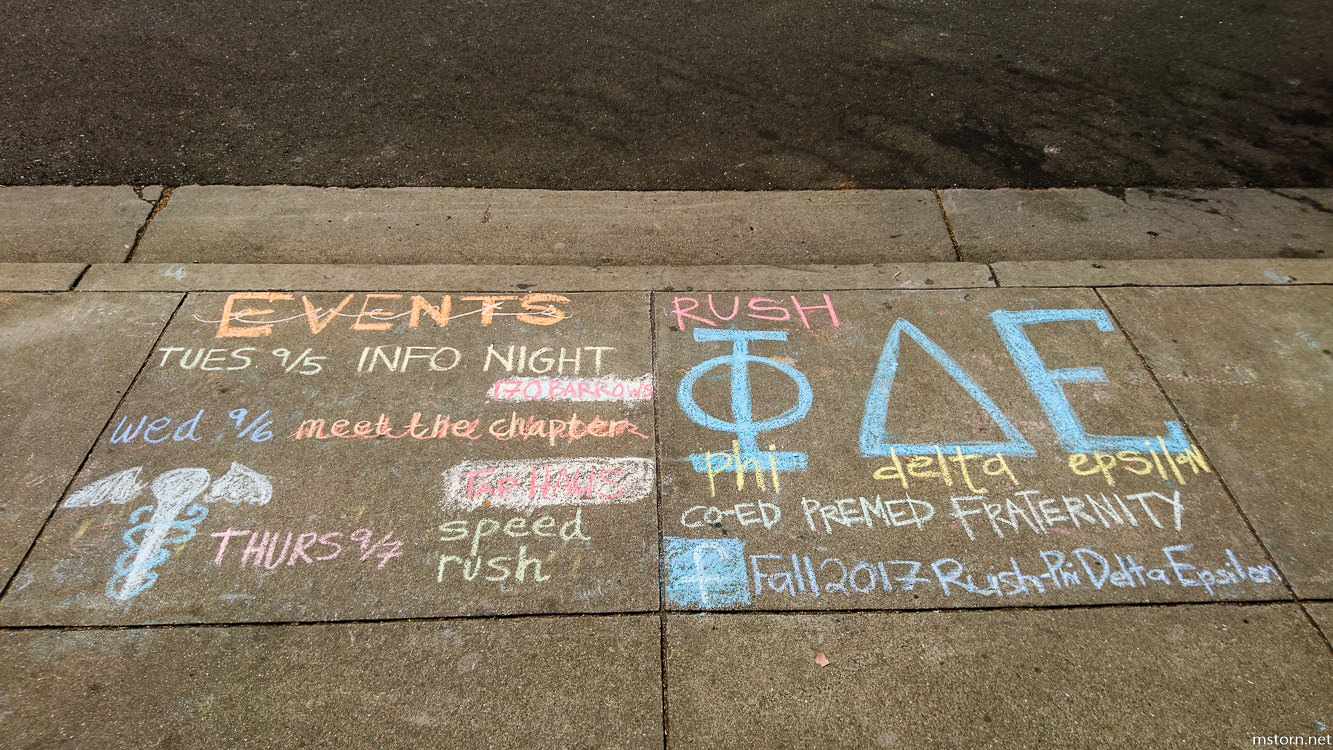 EVENTS
TUES. 9/5 INFO NIGHT
170 BARROWS
wed. 9/6 meet the chapter
TAP HAUS
THURS 9/7 speed
rush
RUSH
ΦΔE
phi delta epsilon
CO-ED PREMED FRATERNITY
f Fall 2017 Rush-Phi Delta Epsilon
mstorn.net